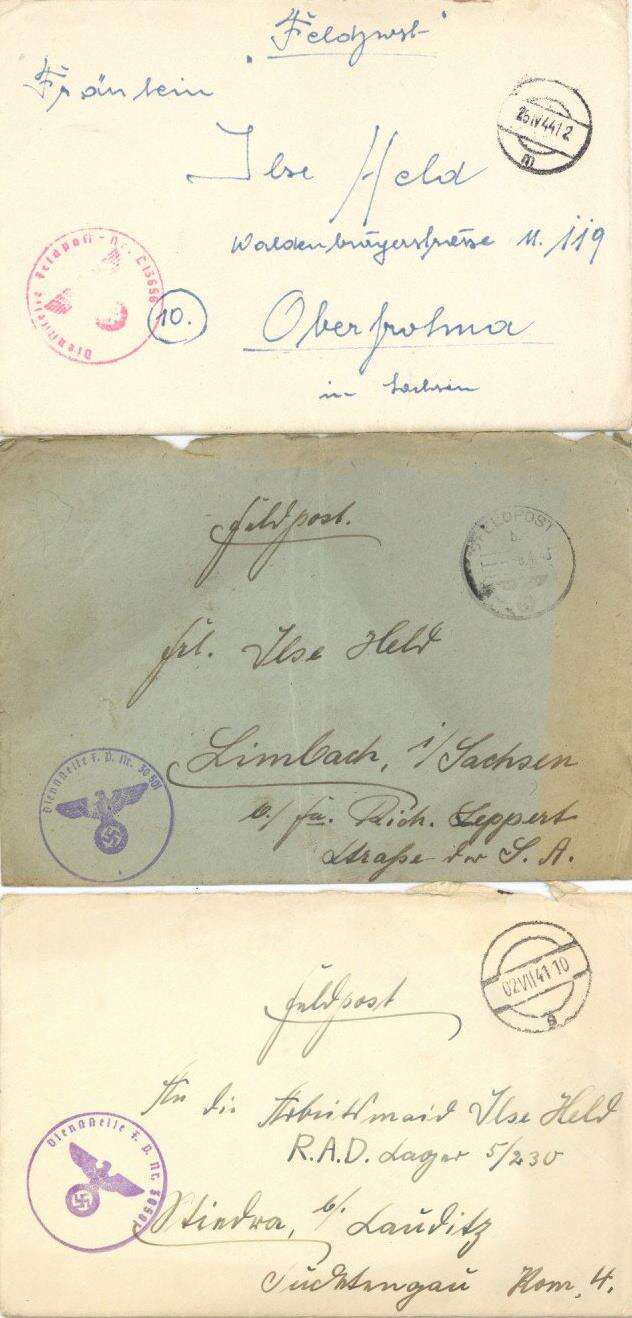 "Feldpost"
Fräulein
25 IV 44 12
m
Ilse Held
Waldenburgerstrasse N. 119
Dienststelle Feldpost-Nr.
10.
Oberfrohna
in Sachsen
Feldpost.
FELDPOST
b
Frl. Ilse Held
Limbach, i/Sachsen
Dienststelle F. P. Nr. 30501
b/ Fa. Rich. Seppert
Straße der S. A.
Feldpost
02 VII 41 10
a
An die Arbeitsmaid Ilse Held
R.A.D. Lager 5/230
Dienststelle F. P. Nr.
Stiedra, b/ Lauditz
Sudetengau Kom. 4.